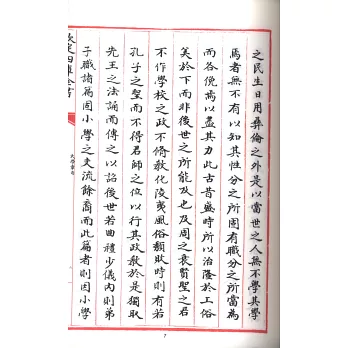 之民生日用彝倫之外是以當世之人無不學其學
焉者無不有以知其性分之所固有職分之所當為
而各俛焉以盡其力此古昔盛時所以治隆於上俗
美於下而非後世之所能及也及周之衰賢聖之君
不作學校之政不脩教化陵夷風俗頹敗時則有若
孔子之聖而不得君師之位以行其政教於是獨取
先王之法誦而傳之以詔後世若曲禮少儀內則弟
子職諸篇固小學之支流餘裔而此篇者則因小學
欽定四庫全書
7